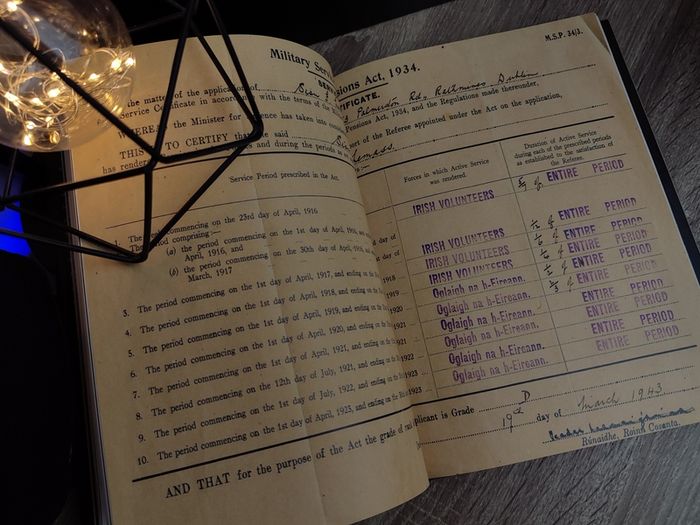 M.S.P. 34/3.
Military Ser sions Act, 1934.
SER TIFICATE.
the matter of the application of Palmerston Rd. Rathmines Dublin
Service Certificate in accordance with the terms of Pensions Act, 1934, and the Regulations made thereunder,
WHEREAS the Minister for ence has taken into ort of the Referee appointed under the Act on the application,
THIS TO CERTIFY tha e said Lemass.
has render and during the periods
Service Period prescribed in the Act.
Forces in which Active Service was rendered.
Duration of Active Service during each of the prescribed periods as established to the satisfaction of the Referee.
1. The commencing on the 23rd day of April, 1916 IRISH VOLUNTEERS of ENTIRE PERIOD
The period comprising :—
(a) the period commencing on the 1st day of April, 1916, day of
April, 1916, and IRISH VOLUNTEERS of ENTIRE PERIOD
(b) the period commencing on the 30th day of April, 1916, day of
March, 1917 IRISH VOLUNTEERS of ENTIRE PERIOD
3. The period commencing on the 1st day of April, 1917, and ending on the 1918 IRISH VOLUNTEERS of ENTIRE PERIOD
4. The period commencing on the 1st day of April, 1918, and ending on the Oglaigh na h-Eireann. of ENTIRE PERIOD
5. The period commencing on the 1st day of April, 1919, and ending on the Oglaigh na h-Eireann. ENTIRE PERIOD
6. The period commencing on the 1st day of April, 1920, and ending on the 1921 Oglaigh na h-Eireann. ENTIRE PERIOD
7. The period commencing on the 1st day of April, 1921, and ending on the 1921 Oglaigh na h-Eireann. ENTIRE PERIOD
8. The period commencing on the 12th day of July, 1921, and ending on the 1922 Oglaigh na h-Eireann. ENTIRE PERIOD
9. The period commencing on the 1st day of July, 1922, and ending on the 1923 Oglaigh na h-Eireann. ENTIRE PERIOD
10. The period commencing on the 1st day of April, 1923, and ending on the 1923
AND THAT for the purpose of the Act the grade of plicant is Grade D
19th day of March 1943
Rúnaidhe, Roinn Cosanta.